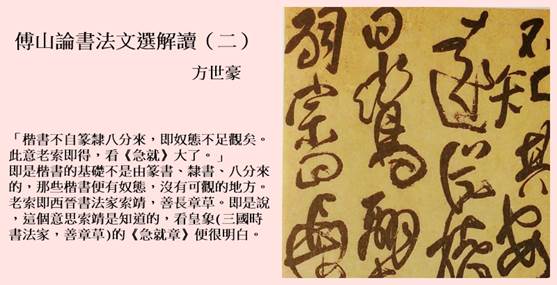 傅山論書法文選解讀（二）
方世豪
「楷書不自篆隸八分來，即奴態不足觀矣。
此意老索即得，看《急就》大了。」
即是楷書的基礎不是由篆書、隸書、八分來
的，那些楷書便有奴態，沒有可觀的地方。
老索即西晉書法家索靖，善長章草。即是說
，這個意思索靖是知道的，看皇象(三國時
書法家，善章草)的《急就章》便很明白。
不知其